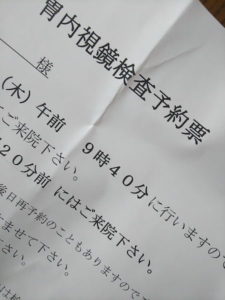 胃内視鏡検査予約票
様
(木) 午前 9時40分に行いますので
てご来院下さい。
20分前 にはご来院下さい。
後日再予約のこともありますので
ませて下さい。
さい。